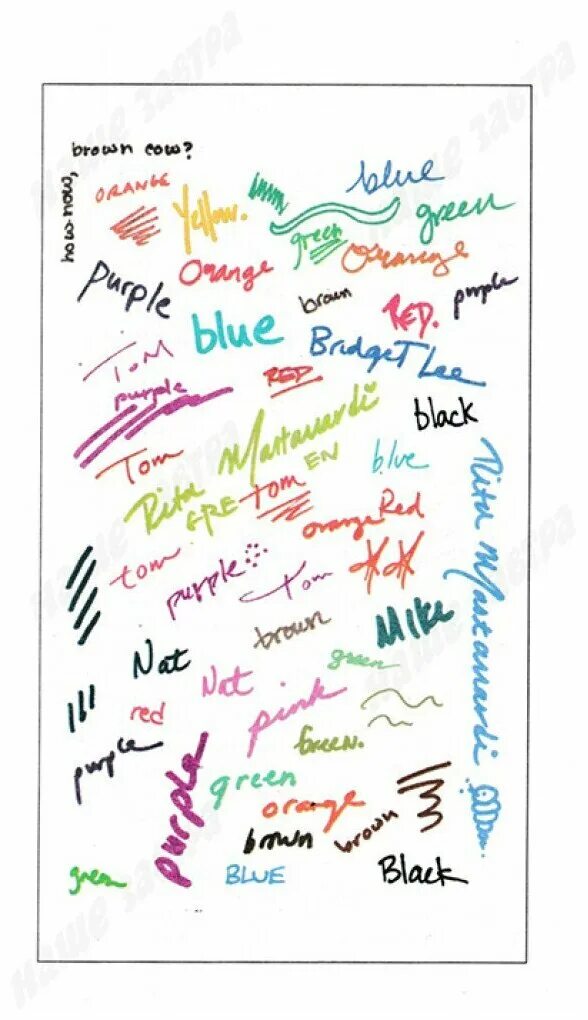 how now,
brown cow?
ORANGE
Yellow.
blue
green
green
Orange
Orange
purple
brown
RED.
purple
blue
Tom
purple
RED
Bridget Lee
black
Tom
Rita Mastanardi
GRE EN
tom
blue
orange
Red
Rita Mastanardi
tom
purple
Tom
brown
Mike
Nat
green
Nat
red
pink
purple
Green.
purple
green
orange
brown
brown
green
BLUE
Black
наше завтра
наше завтра
наше завтра
наше завтра
наше завтра
наше завтра
наше завтра
наше завтра